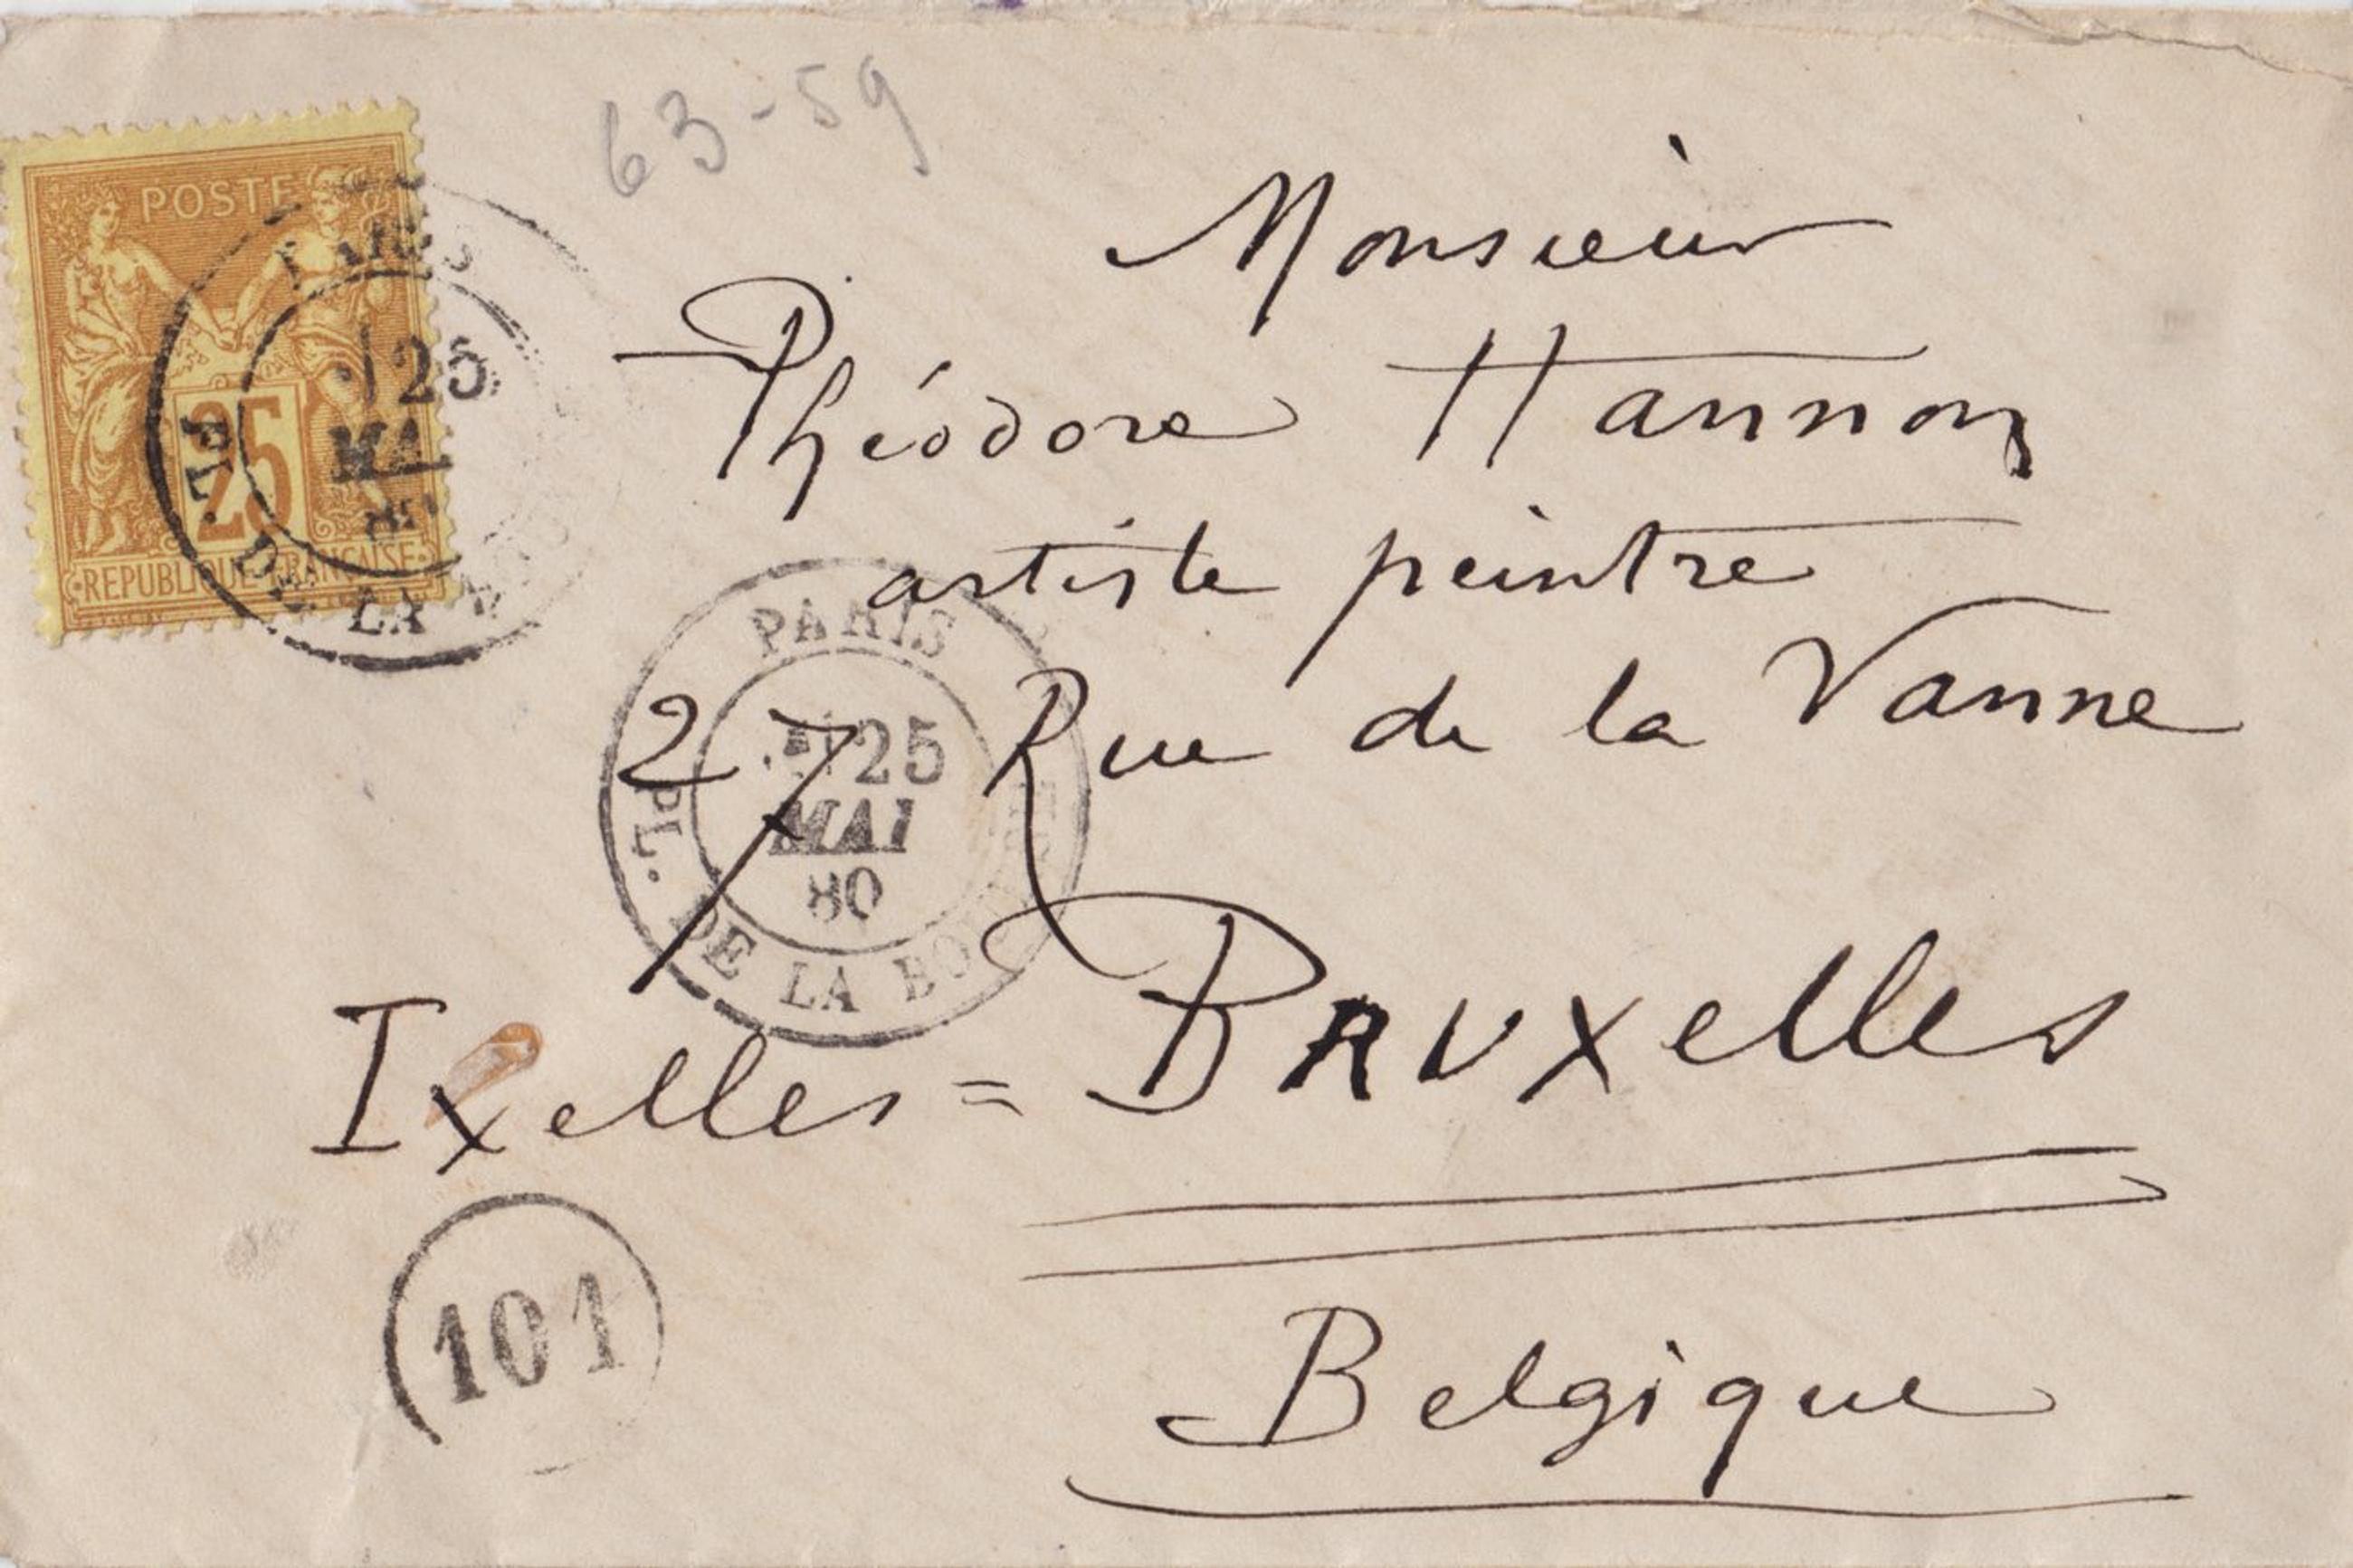 63-59
POSTE
25
REPUBLIQUE FRANÇAISE
PARIS
25
MAI
PL. DE LA
Monsieur
Théodore Hannon
artiste peintre
27 Rue de la Vanne
PARIS
25
MAI
80
PL. DE LA BOURSE
Ixelles = BRUxelles
Belgique
101